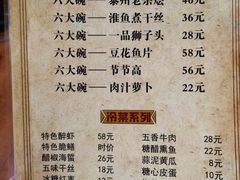 六大碗——泰州老杂烩 46元
六大碗——淮鱼煮干丝 36元
六大碗——一品狮子头 28元
六大碗——豆花鱼片 58元
六大碗——节节高 56元
六大碗——肉汁萝卜 22元
冷菜系列
特色醉虾 58元 五香牛肉 28元
特色脆鳝 时价 糖醋熏鱼
醋椒海蜇 26元 蒜泥黄瓜 8元
五味干丝 18元 糖心皮蛋